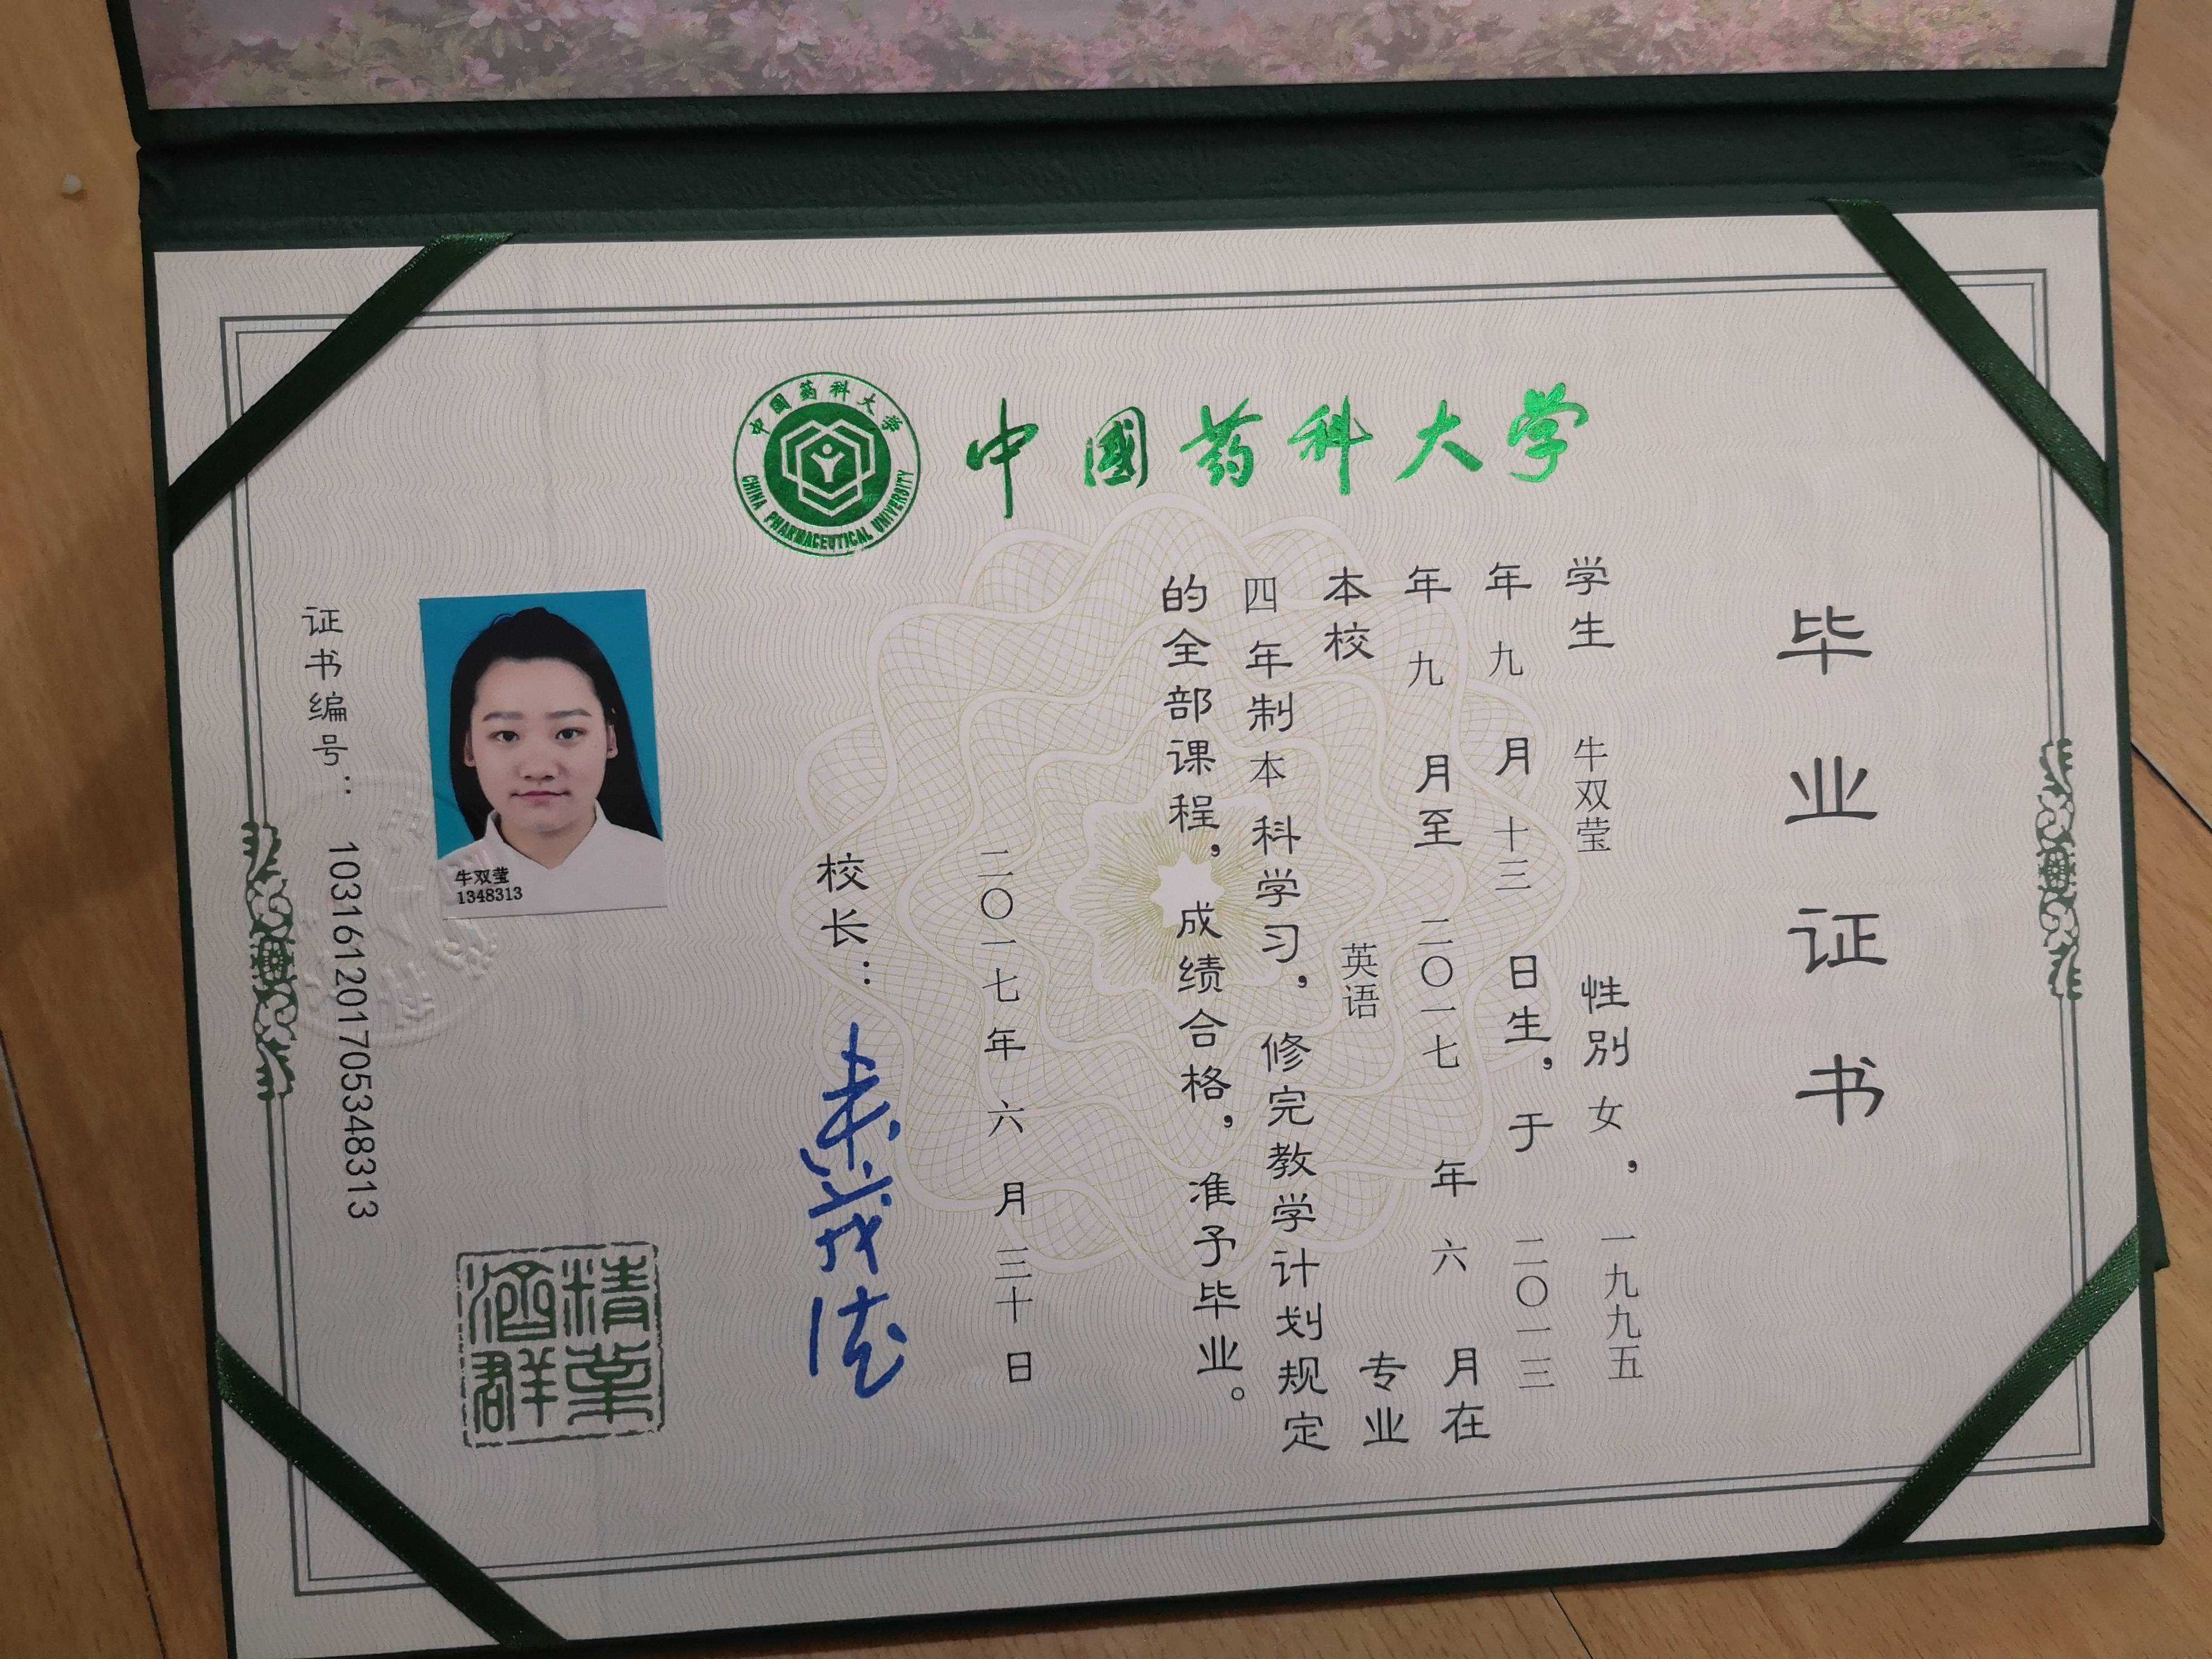 中国药科大学
CHINA PHARMACEUTICAL UNIVERSITY
中國药科大学
毕业证书
学生 牛双莹 性别 女，一九九五
年九月十三日生，于二〇一三
年九月至二〇一七年六月在
本校 英语 专业
四年制本科学习，修完教学计划规定
的全部课程，成绩合格，准予毕业。
二〇一七年六月三十日
校长：
牛双莹
1348313
证书编号：103161201705348313
精业
济群